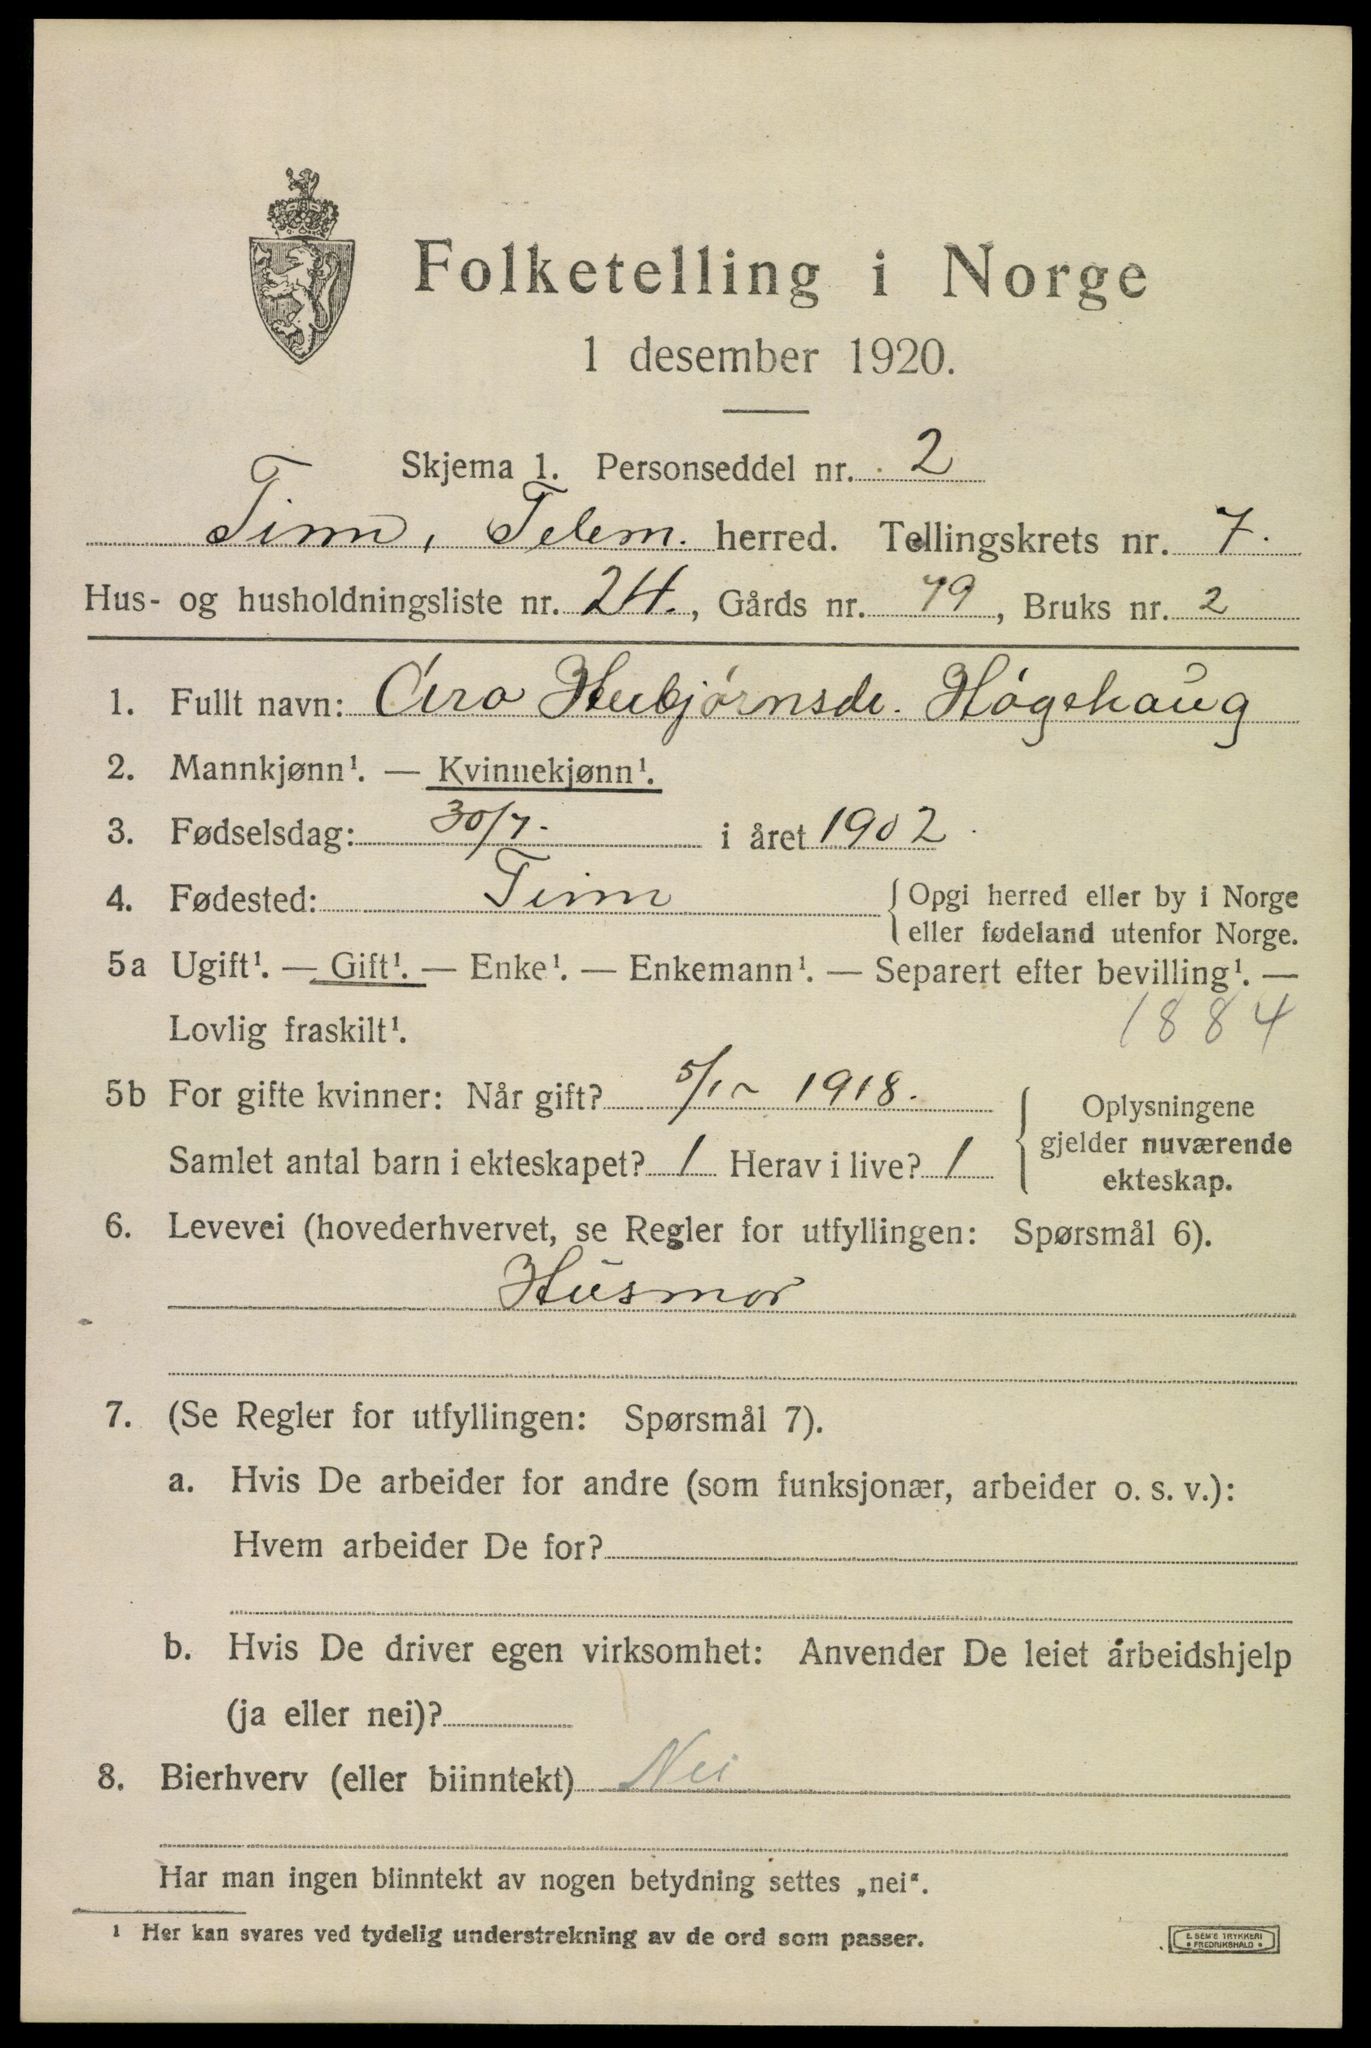 Folketelling i Norge
1 desember 1920.
Skjema 1. Personseddel nr. 2
Tinn, Telem. herred. Tellingskrets nr. 7.
Hus- og husholdningsliste nr. 24., Gårds nr. 79, Bruks nr. 2
1. Fullt navn: Høgehaug
2. Mannkjønn¹. — Kvinnekjønn¹.
3. Fødselsdag: 30/7. i året 1902.
4. Fødested: Tinn { Opgi herred eller by i Norge
eller fødeland utenfor Norge.
5a Ugift¹. — Gift¹. — Enke¹. — Enkemann¹. — Separert efter bevilling¹. —
Lovlig fraskilt¹. 1884
5b For gifte kvinner: Når gift? 5/1 - 1918. { Oplysningene
gjelder nuværende
Samlet antal barn i ekteskapet? 1 Herav i live? 1
ekteskap.
6. Levevei (hovederhvervet, se Regler for utfyllingen: Spørsmål 6).
Husmor
7. (Se Regler for utfyllingen: Spørsmål 7).
a. Hvis De arbeider for andre (som funksjonær, arbeider o. s. v.):
Hvem arbeider De for?
b. Hvis De driver egen virksomhet: Anvender De leiet arbeidshjelp
(ja eller nei)?
8. Bierhverv (eller biinntekt) Nei
Har man ingen biinntekt av nogen betydning settes „nei".
¹ Her kan svares ved tydelig understrekning av de ord som passer.
E. SEM'S TRYKKERI
• FREDRIKSHALD •